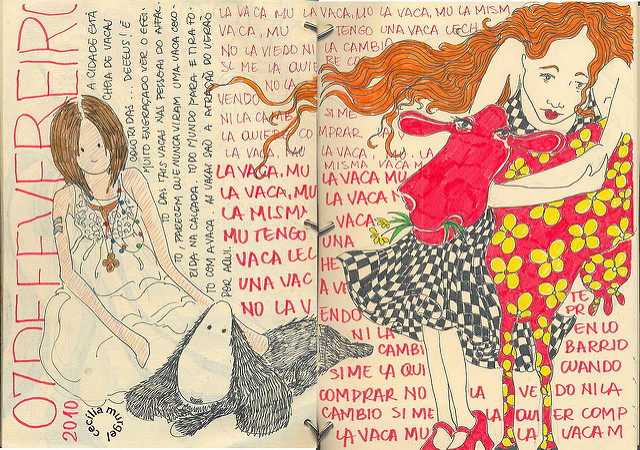 07 DE FEVEREIRO
2010
Cecília murgel
A CIDADE ESTÁ
CHEIA DE VACAS
COLORIDAS... DEEEUS! É
MUITO ENGRAÇADO VER O EFEI-
TO DAS TAIS VACAS NAS PESSOAS DO ASFAL-
TO, PARECEM QUE NUNCA VIRAM UMA VACA COLO-
RIDA NA CALÇADA. TODO MUNDO PARA E TIRA FO-
TO COM A VACA. AS VACAS SÃO A ATRAÇÃO DO VERÃO
POR AQUI.
LA VACA MU
VACA, MU
NO LA VENDO NI
SI ME LA QUIE
NO LA
VENDO
NI LA CAMB
LA QUIERO CO
LA VACA, MU
LA VACA, MU
LA VACA, MU
LA MISMA
MU TENGO
VACA LEC
UNA VAC
NO LA V
LA VACA, MU LA VACA, MU LA MISM
TENGO UNA VACA LECH
LA CAMBIO
SI ME
MPRAR
LA VACA, MU LA
MISMA VACA M
LA VACA MU
LA VACA
VACA
UNA
HE
A VE
ENDO
NI LA
CAMBI
SI ME LA QUI
COMPRAR NO LA VE DO NI LA
CAMBIO SI ME LA QUI ER COMP
LA VACA MU LA VACA M
TE
PR
EN LO
BARRIO
CUANDO